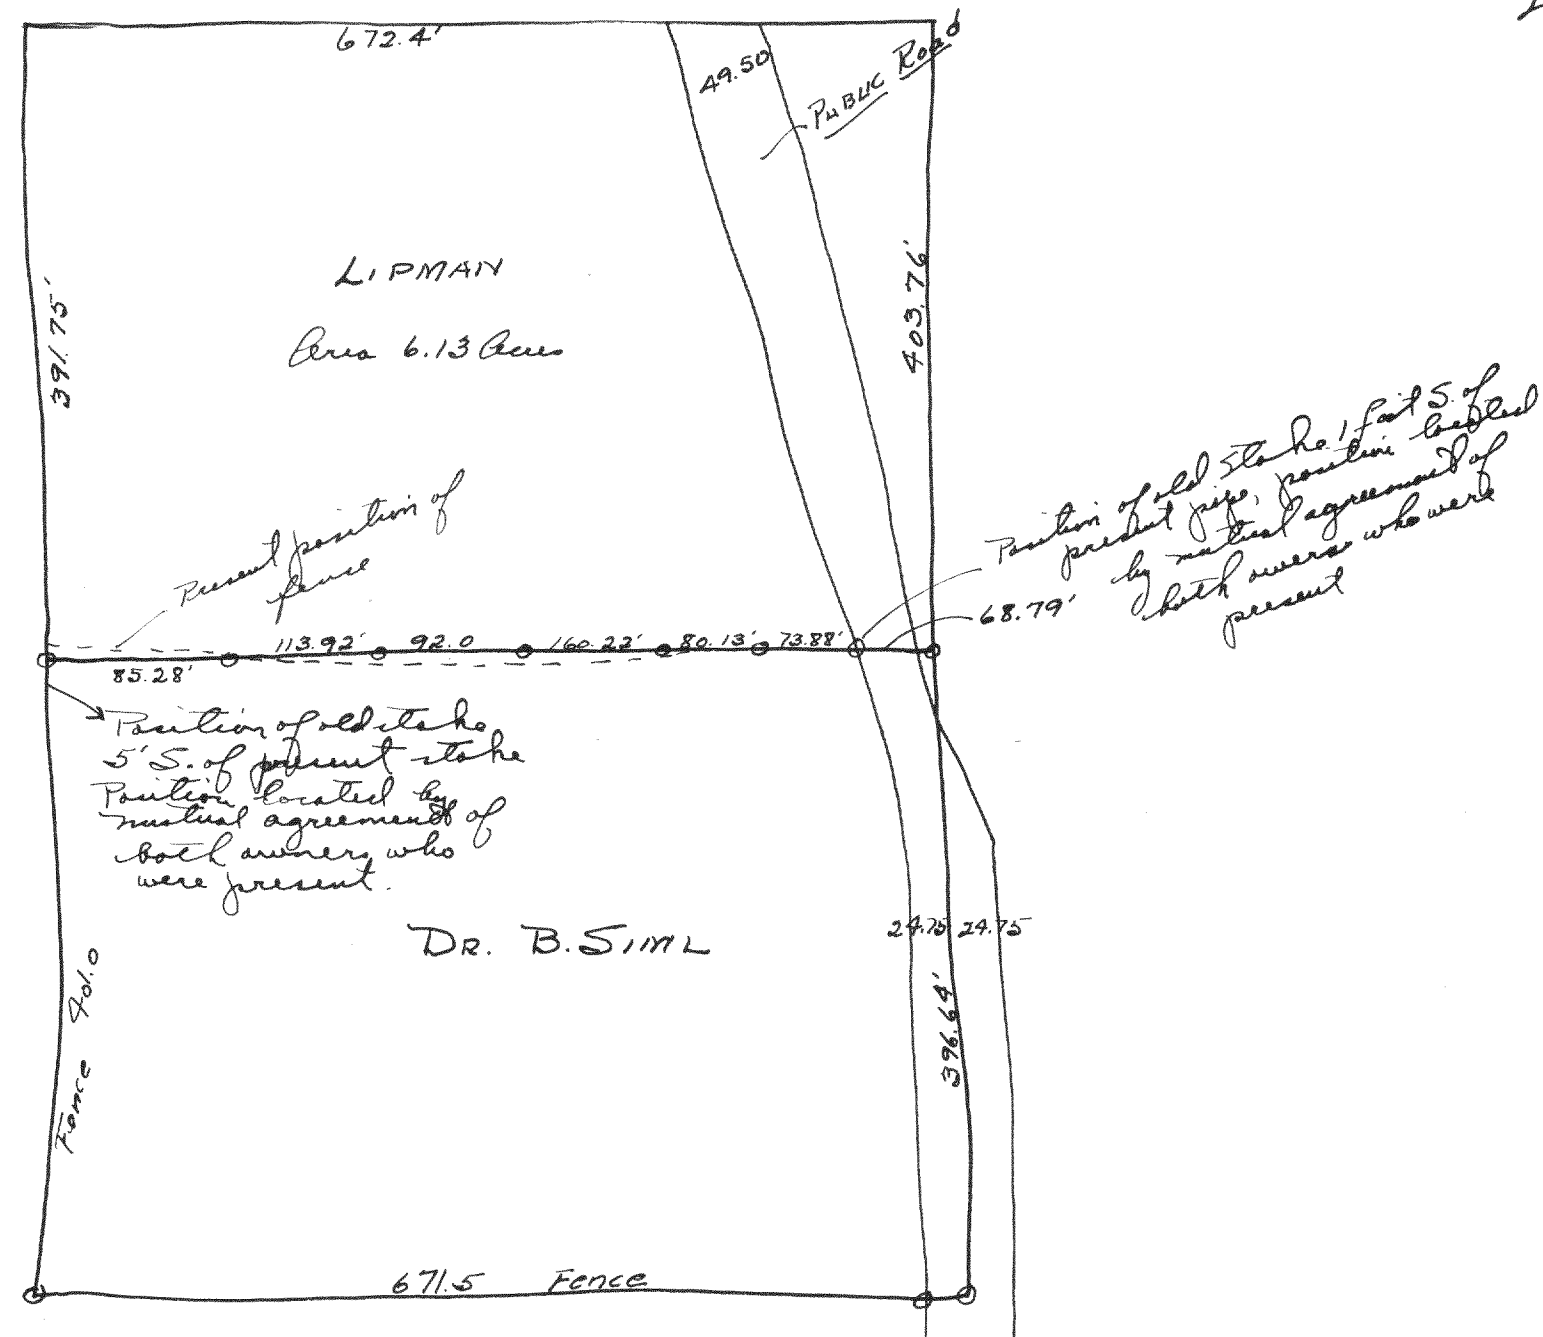 672.4'
49.50
PUBLIC Road
391.75'
403.76'
LIPMAN
Area 6.13 Acres
Present position of
fence
Position of old stake 1 foot S. of
present pipe, position located
by mutual agreement of
both owners who were
present
68.79'
113.92'
92.0
160.22'
80.13'
73.88'
85.28'
Position of old stake
5' S. of present stake
Position located by
mutual agreement of
both owners who
were present.
DR. B. SIML
24.75
24.75
Fence 401.0
396.64'
671.5 Fence